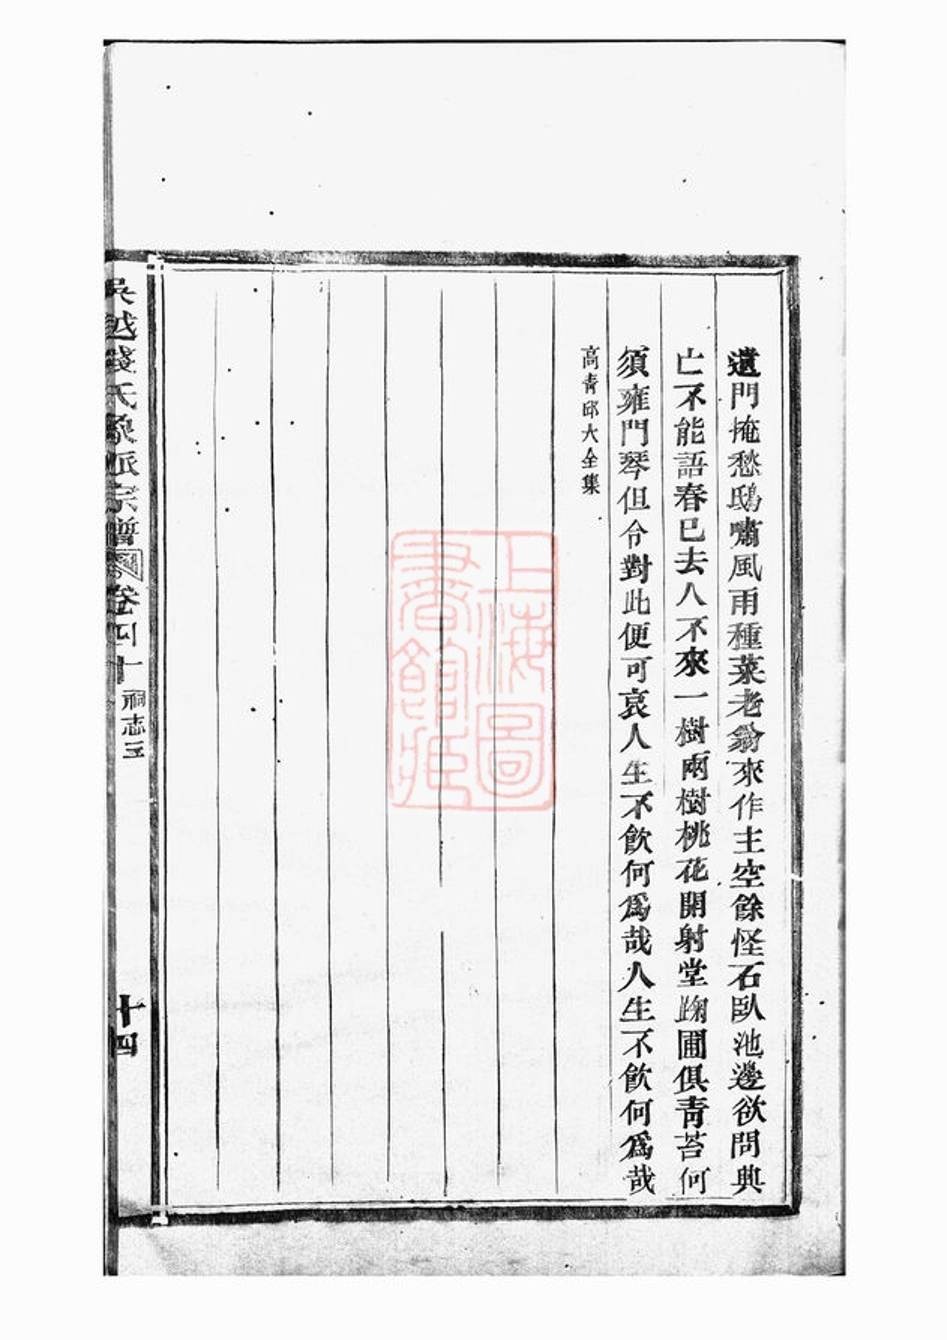 遺門掩愁鴟嘯風雨種菜老翁來作主空餘怪石臥池邊欲問興
亡不能語春已去人不來一樹兩樹桃花開射堂踘圃俱青苔何
須雍門琴但令對此便可哀人生不飲何爲哉人生不飲何爲哉
高青邱大全集
吳越錢氏象派宗譜 卷四十 祠志三
十四
上海圖
書館藏